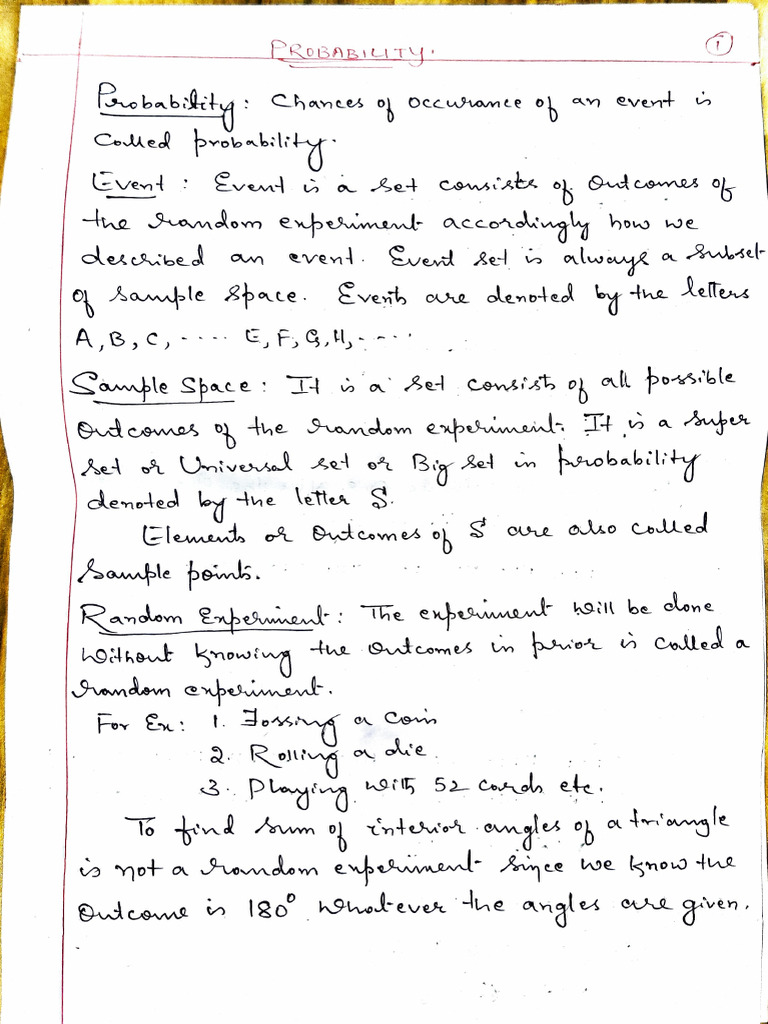 PROBABILITY.
1
Probability: Chances of occurance of an event is
called probability.
Event: Event is a set consists of outcomes of
the random experiment accordingly how we
described an event. Event set is always a subset
of sample space. Events are denoted by the letters
A, B, C, ..... E, F, G, H, .....
Sample Space: It is a set consists of all possible
outcomes of the random experiment. It is a super
set or Universal set or Big set in probability
denoted by the letter S.
Elements or outcomes of S are also called
sample points.
Random Experiment: The experiment will be done
without knowing the outcomes in prior is called a
random experiment.
For Ex: 1. Tossing a coin
2. Rolling a die
3. Playing with 52 cards etc.
To find sum of interior angles of a triangle
is not a random experiment since we know the
outcome is 180° whatever the angles are given.